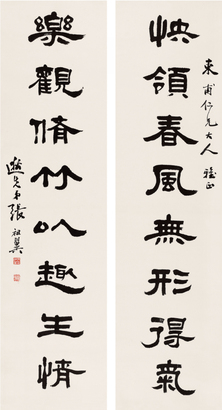 東甫仁兄大人雅正
快領春風無形得氣
樂觀脩竹以趣生情
逖先弟張祖翼